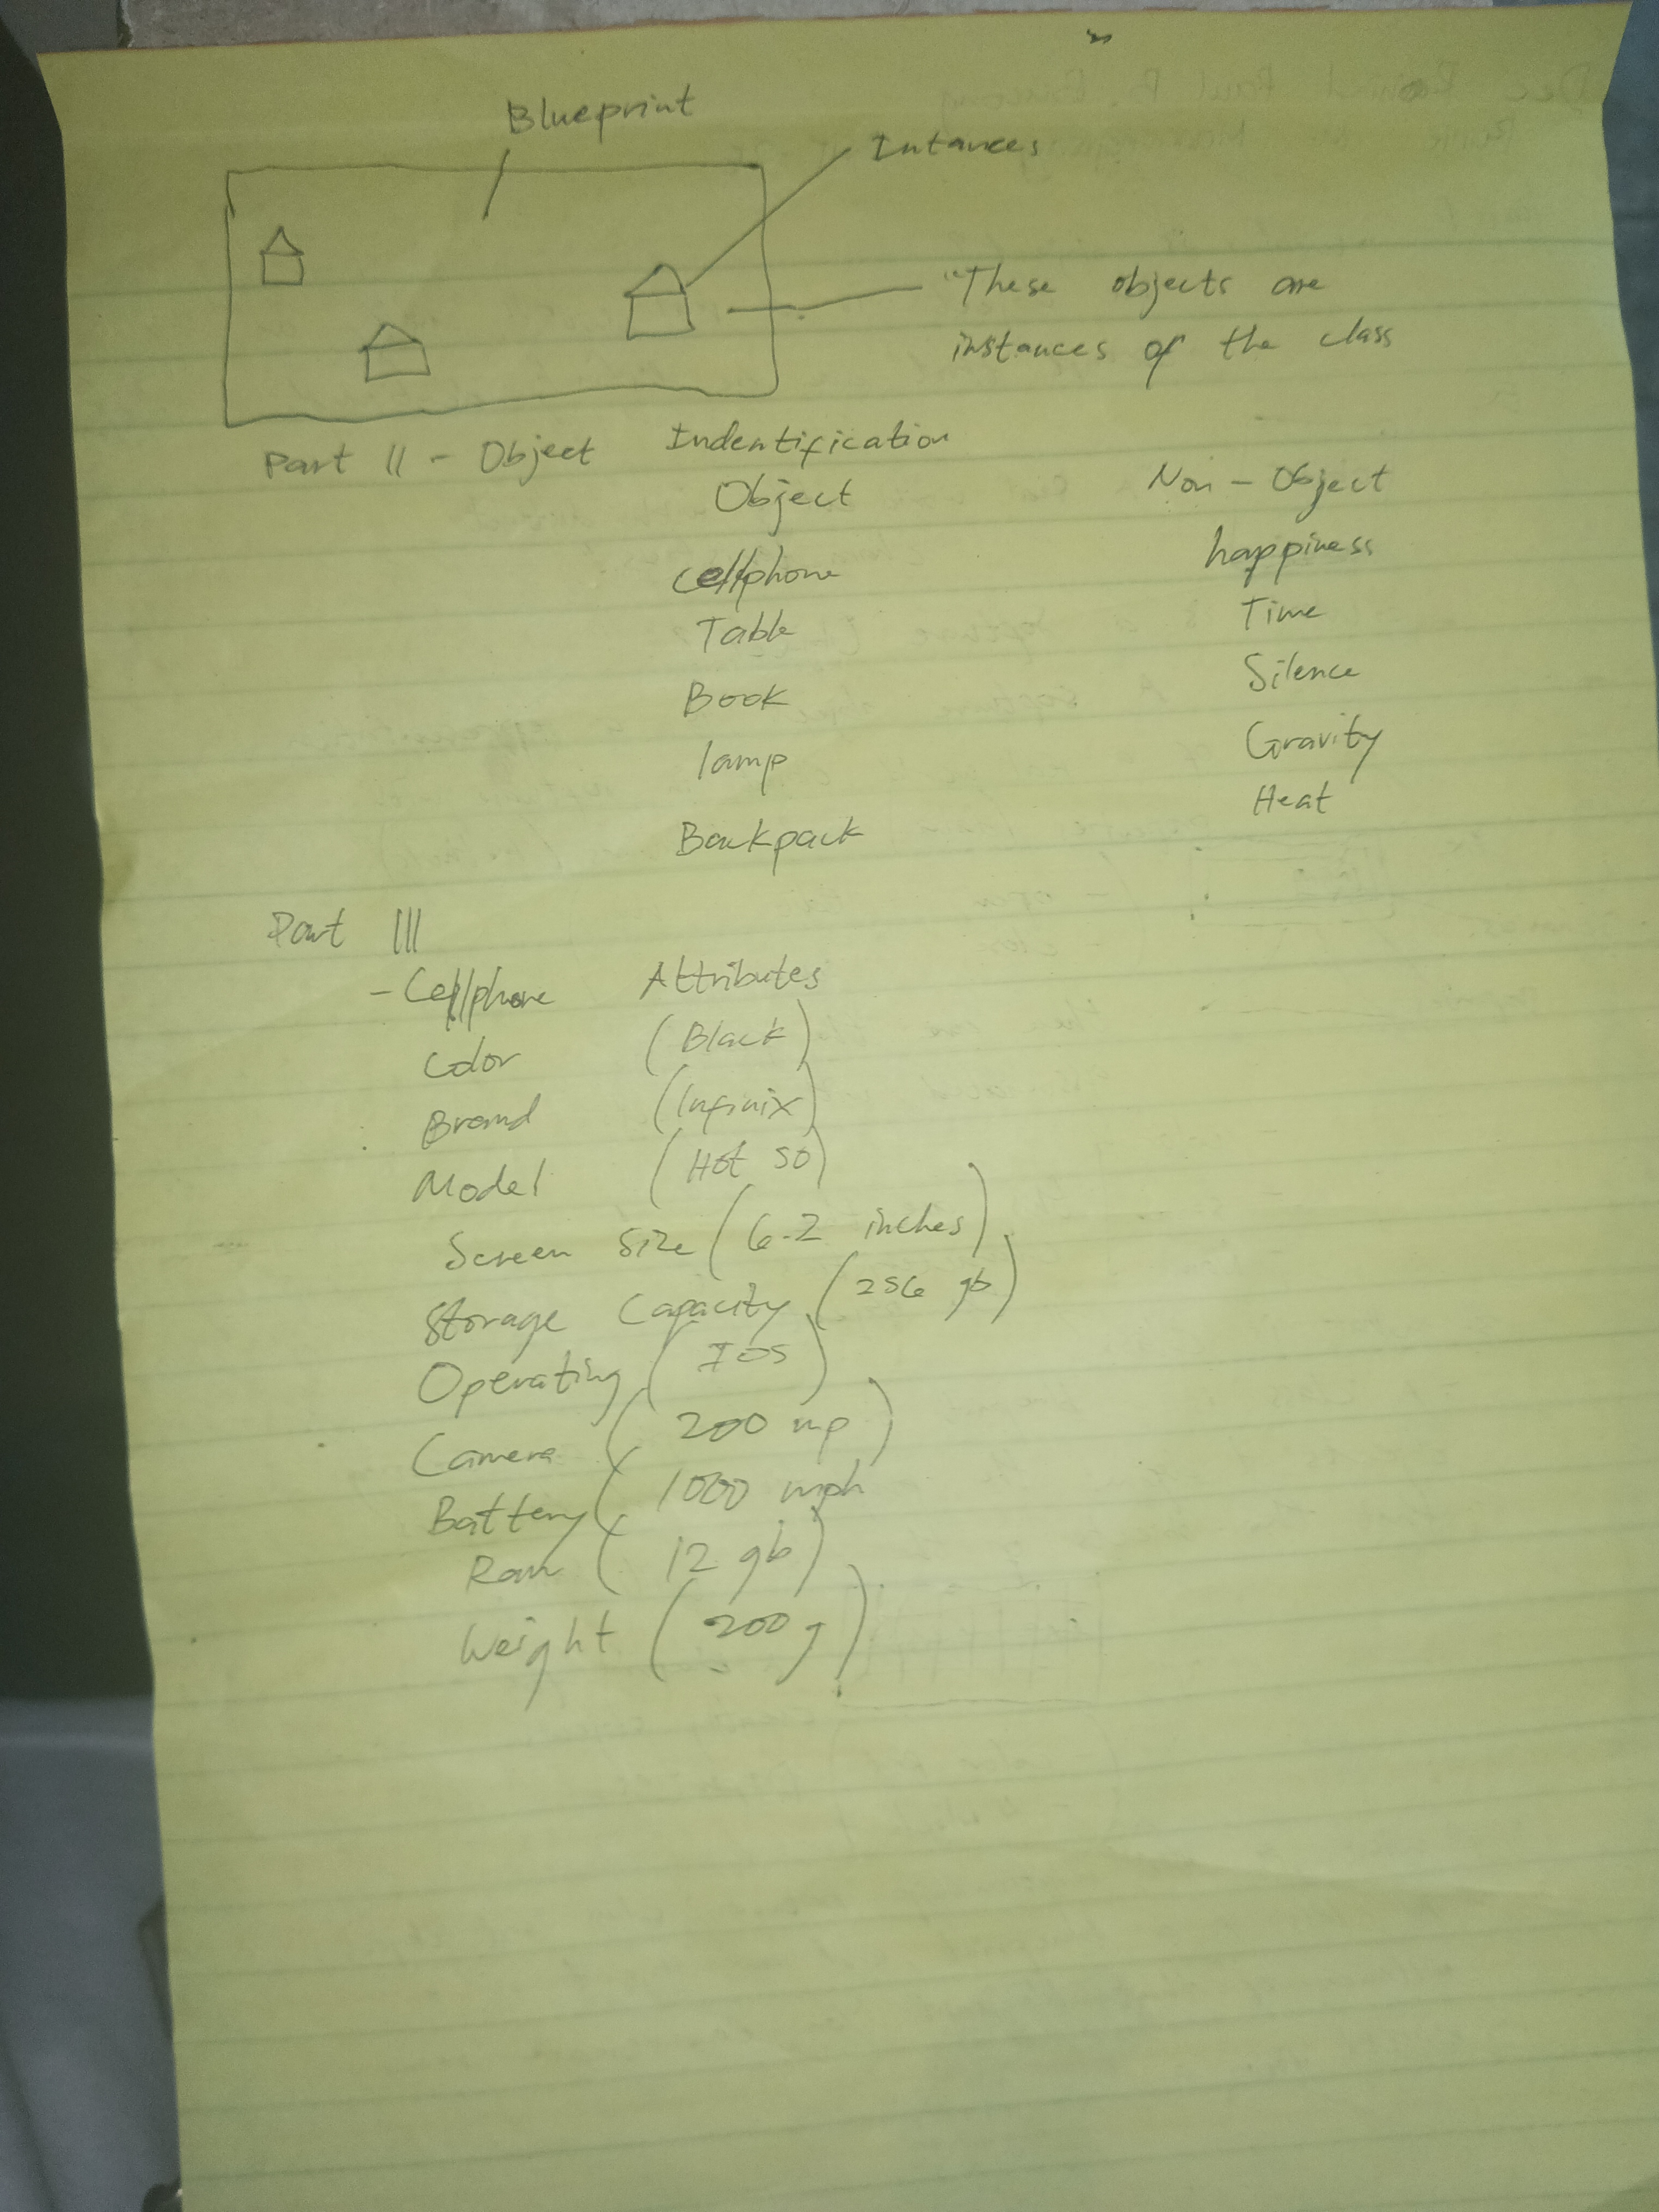 Blueprint
Intances
"These objects are
instances of the class
Part II - Object Indentification
Object Non - Object
cellphone happiness
Table Time
Book Silence
lamp Gravity
Backpack Heat
Part III
- Cellphone Attributes
Color (Black)
Brand (Infinix)
Model (Hot 50)
Screen Size (6.2 inches)
Storage Capacity (256 gb)
Operating (IOS)
Camera (200 mp)
Battery (1000 mph
Ram (12 gb)
Weight (200 g)